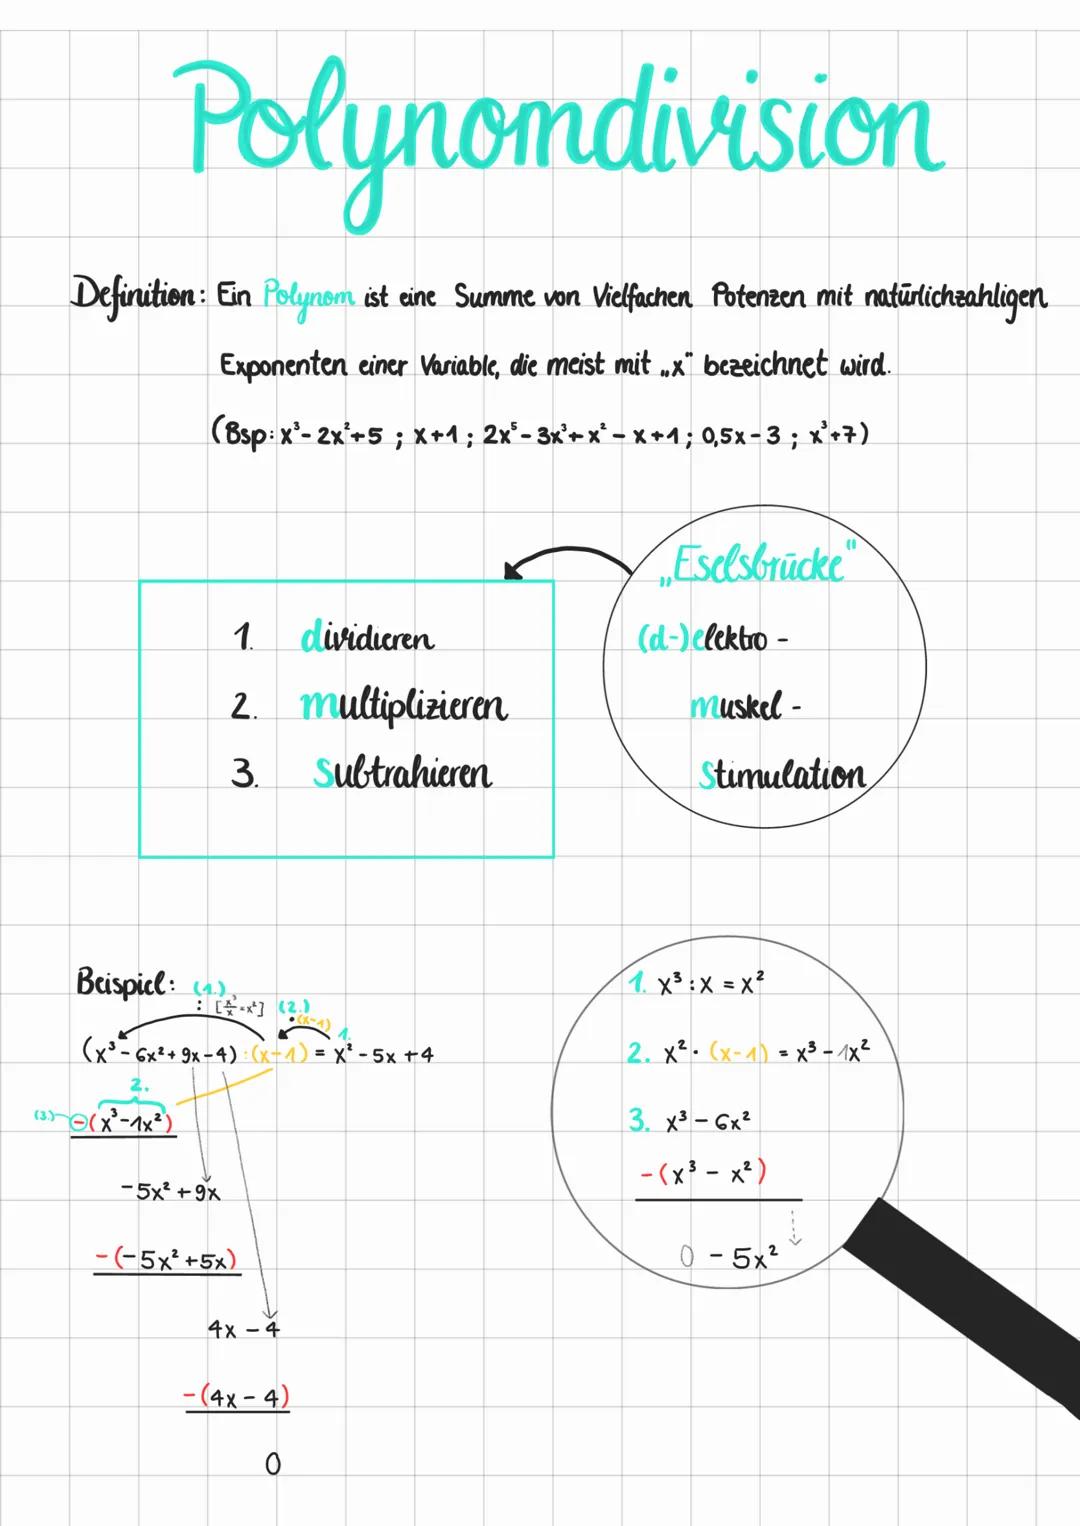 Polynomdivision
Definition: Ein Polynom ist eine Summe von Vielfachen Potenzen mit natürlichzahligen
Exponenten einer Variable, die meist mit „x" bezeichnet wird.
(Bsp: x³- 2x²+5 ; x+1 ; 2x⁵- 3x³+ x² - x+1 ; 0,5x - 3 ; x³+7)
1. dividieren
2. multiplizieren
3. Subtrahieren
„Eselsbrücke"
(d-)elektro -
muskel -
Stimulation
Beispiel: (1.)
: [x³/x = x²] (2.)
• (x-1) 1.
(x³- 6x² + 9x - 4) : (x-1) = x² - 5x + 4
2.
(3.) -(x³-1x²)
-5x² + 9x
-(-5x² +5x)
4x - 4
-(4x - 4)
0
1. x³ : x = x²
2. x² · (x-1) = x³ - 1x²
3. x³ - 6x²
-(x³ - x²)
0 - 5x²